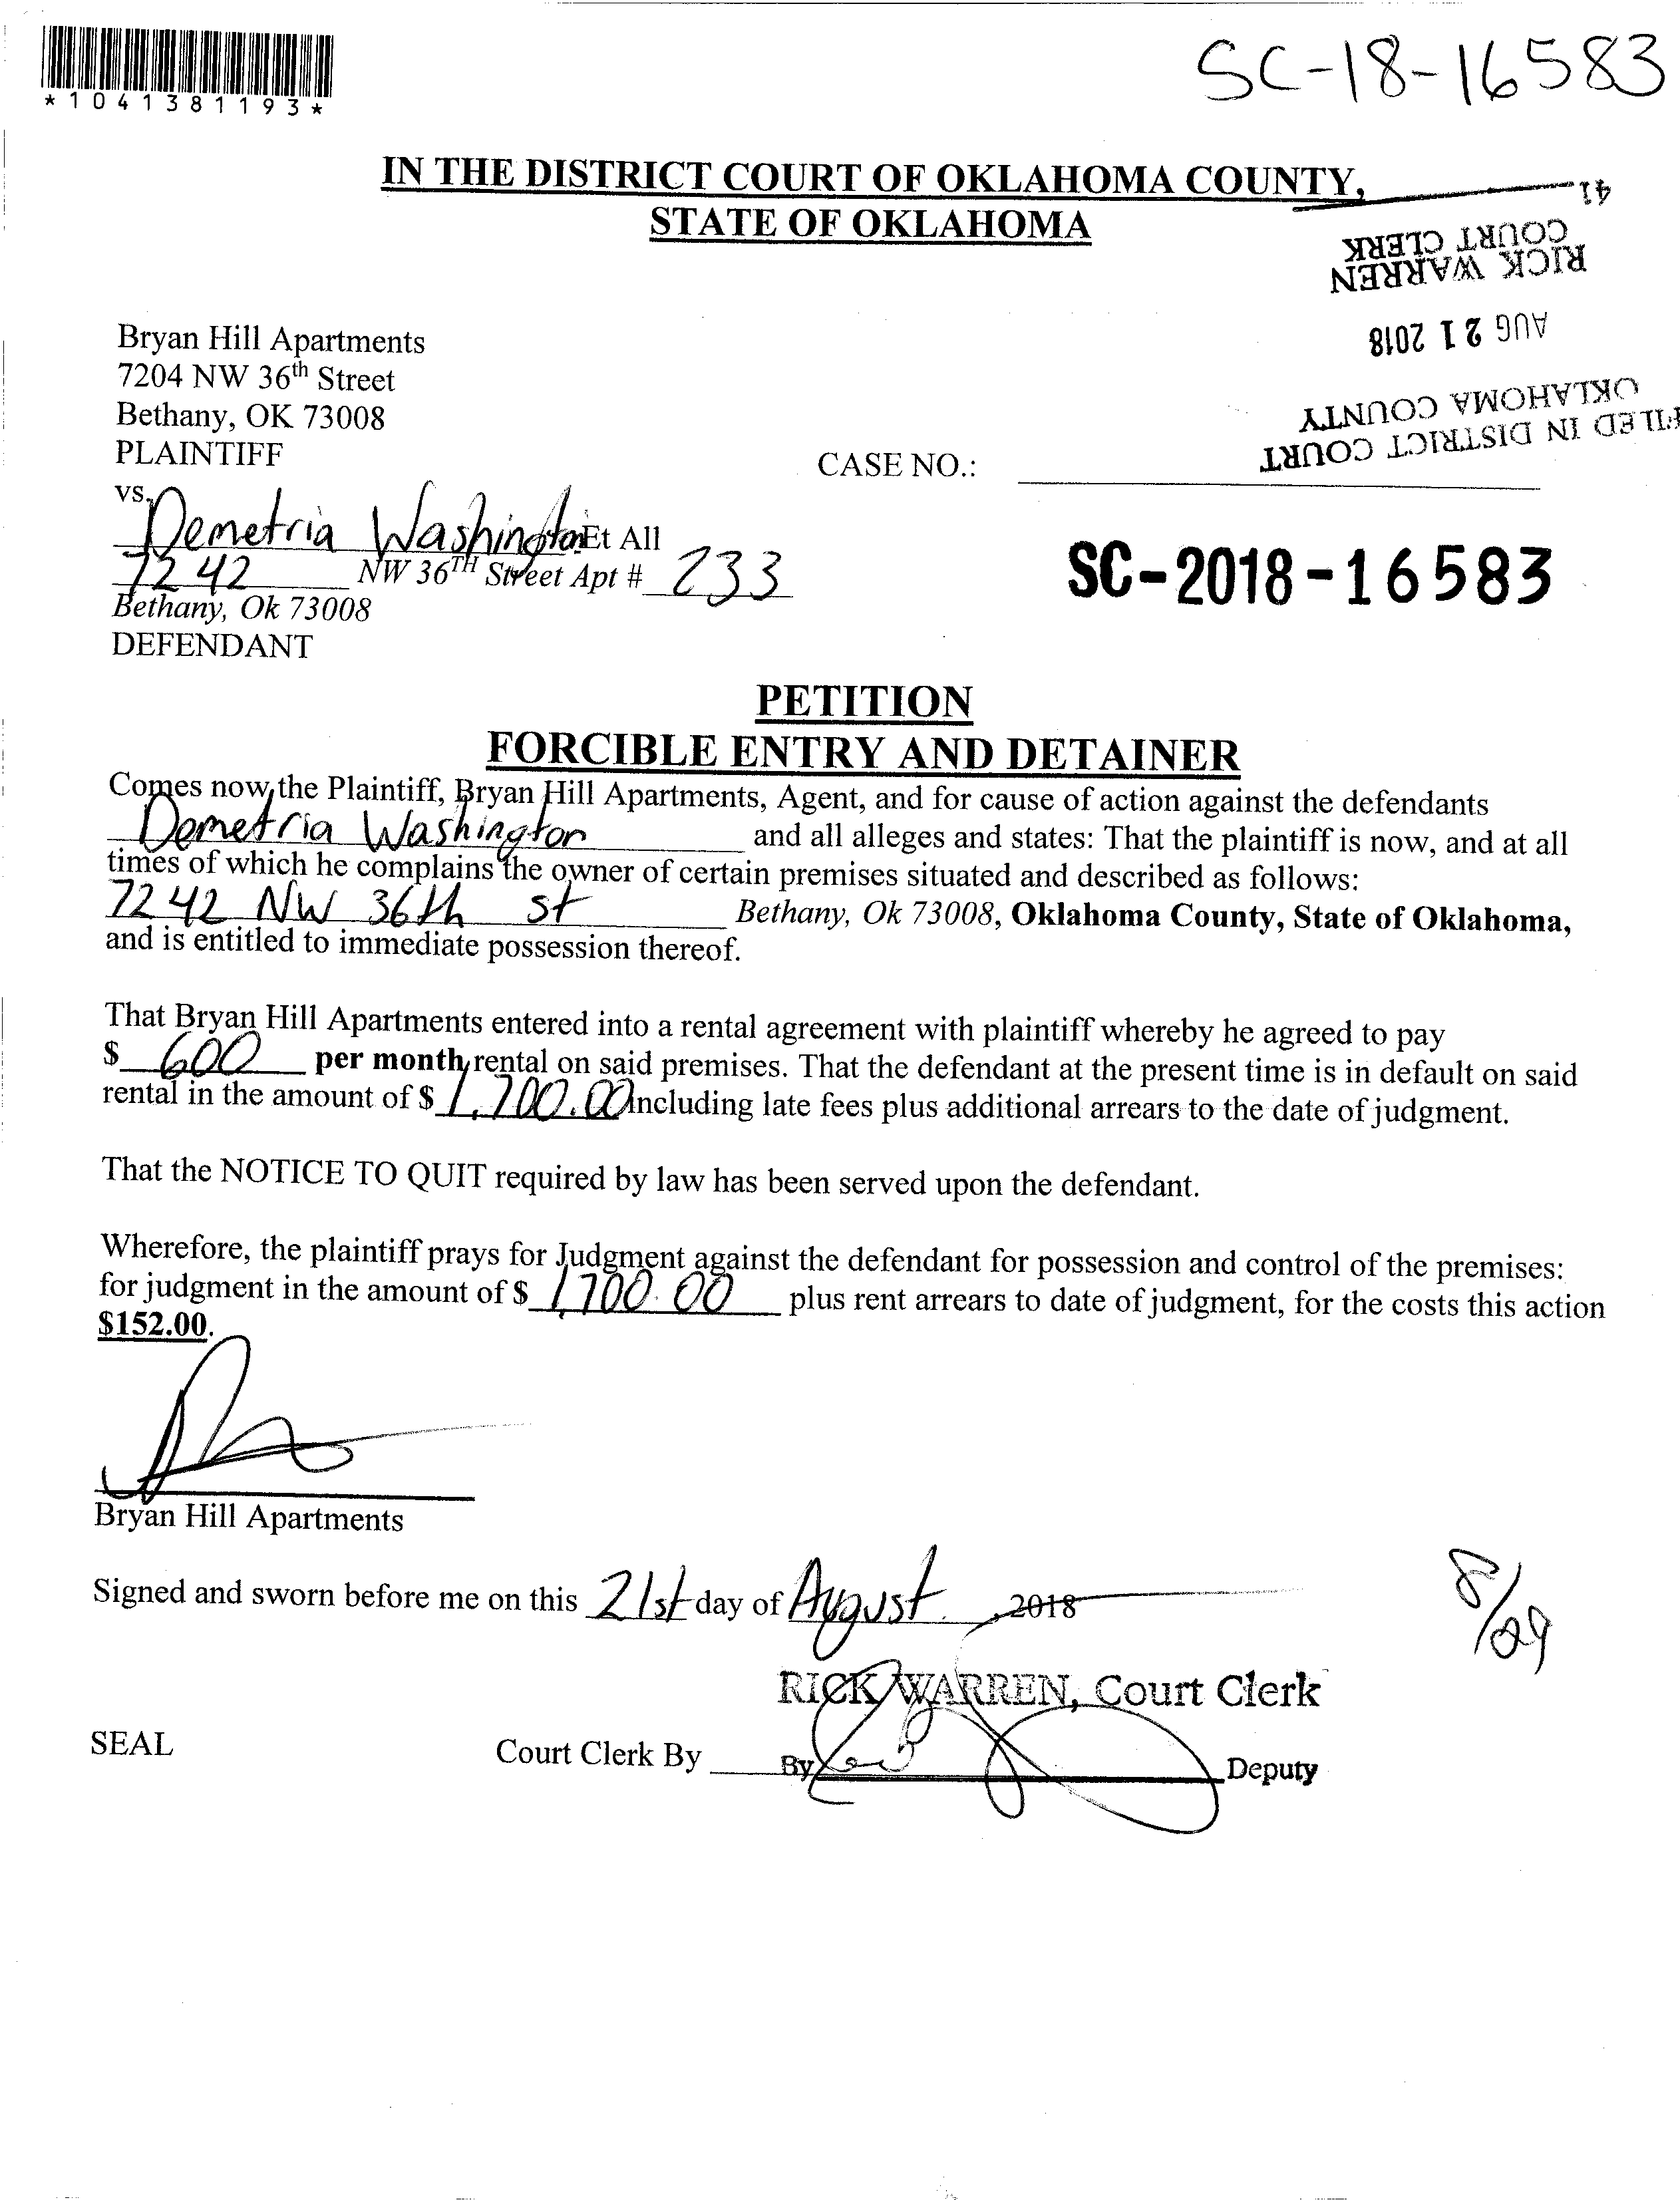 SC-18-16583
*1041381193*
IN THE DISTRICT COURT OF OKLAHOMA COUNTY,
STATE OF OKLAHOMA
41
RICK WARREN
COURT CLERK
AUG 21 2018
FILED IN DISTRICT COURT
OKLAHOMA COUNTY
Bryan Hill Apartments
7204 NW 36th Street
Bethany, OK 73008
PLAINTIFF
CASE NO.:
vs.
Demetria Washington Et All
7242 NW 36TH Street Apt # 233
SC-2018-16583
Bethany, Ok 73008
DEFENDANT
PETITION
FORCIBLE ENTRY AND DETAINER
Comes now, the Plaintiff, Bryan Hill Apartments, Agent, and for cause of action against the defendants
Demetria Washington and all alleges and states: That the plaintiff is now, and at all
times of which he complains the owner of certain premises situated and described as follows:
7242 NW 36th st Bethany, Ok 73008, Oklahoma County, State of Oklahoma,
and is entitled to immediate possession thereof.
That Bryan Hill Apartments entered into a rental agreement with plaintiff whereby he agreed to pay
$ 600 per month rental on said premises. That the defendant at the present time is in default on said
rental in the amount of $ 1,700.00 including late fees plus additional arrears to the date of judgment.
That the NOTICE TO QUIT required by law has been served upon the defendant.
Wherefore, the plaintiff prays for Judgment against the defendant for possession and control of the premises:
for judgment in the amount of $ 1,700.00 plus rent arrears to date of judgment, for the costs this action
$152.00.
Bryan Hill Apartments
Signed and sworn before me on this 21st day of August, 2018
8/29
RICK WARREN, Court Clerk
SEAL
Court Clerk By
By Deputy